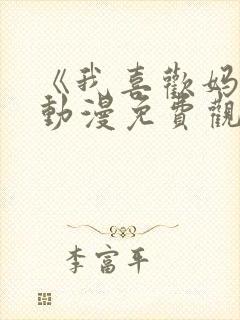 《我喜歡媽
動漫免費觀
李富平